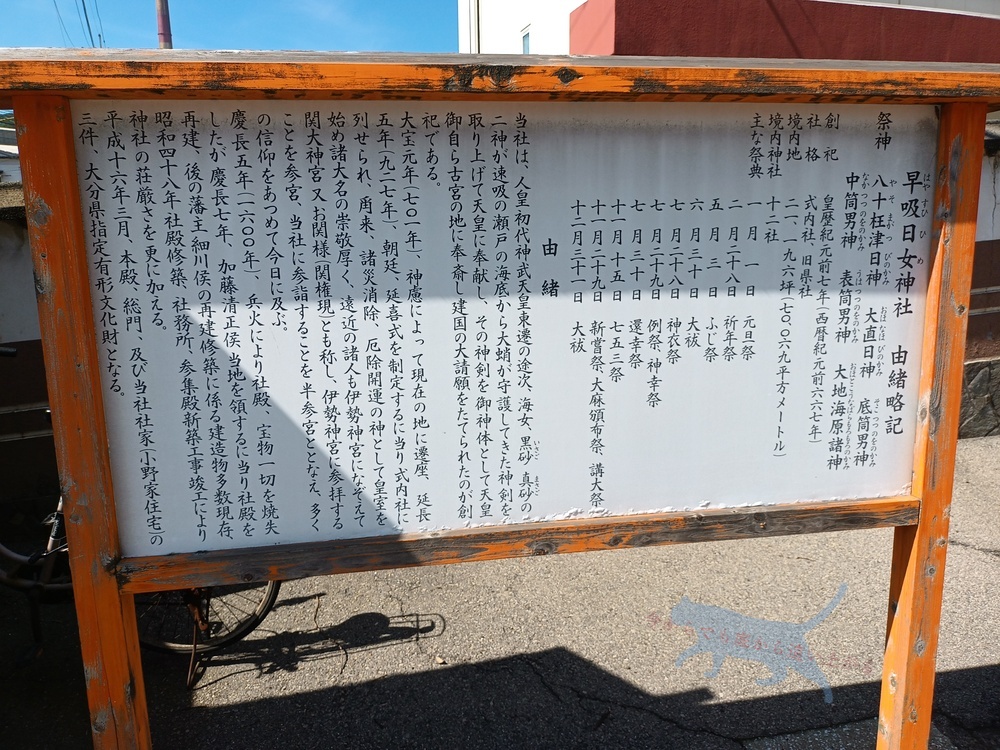 早吸日女神社 由緒略記
祭神 八十枉津日神 大直日神 底筒男神
中筒男神 表筒男神 大地海原諸神
創祀 皇暦紀元前七年(西暦紀元前六六七年)
社格 式内社、旧県社
境内地 二一、一九六坪(七〇〇六九平方メートル)
境内神社 十二社
主な祭典 一月一日 元旦祭
二月二十八日 祈年祭
五月三日 ふじ祭
六月三十日 大祓
七月二十八日 神衣祭
七月二十九日 例祭、神幸祭
七月三十日 還幸祭
十一月十五日 七五三祭
十一月二十九日 新嘗祭、大麻頒布祭、講大祭
十二月三十一日 大祓
由緒
当社は、人皇初代神武天皇東遷の途次、海女、黒砂 真砂の
二神が速吸の瀬戸の海底から大蛸が守護してきた神剣を
取り上げて天皇に奉献し、その神剣を御神体として天皇
御自ら古宮の地に奉斎し建国の大請願をたてられたのが創
祀である。
大宝元年(七〇一年)、神慮によって現在の地に遷座、延長
五年(九二七年)、朝廷、延喜式を制定するに当り式内社に
列せられ、爾来、諸災消除、厄除開運の神として皇室を
始め諸大名の崇敬厚く、遠近の諸人も伊勢神宮になぞえて
関大神宮又お関様(関権現)とも称し、伊勢神宮に参拝する
ことを参宮、当社に参詣することを半参宮ととなえ、多く
の信仰をあつめて今日に及ぶ。
慶長五年(一六〇〇年)、兵火により社殿、宝物一切を焼失
したが慶長七年、加藤清正侯当地を領するに当り社殿を
再建、後の藩主・細川侯の再建修築に係る建造物多数現存、
昭和四十八年社殿修築、社務所、参集殿新築工事竣工により
神社の荘厳さを更に加える。
平成十六年三月、本殿、総門、及び当社社家(小野家住宅)の
三件、大分県指定有形文化財となる。